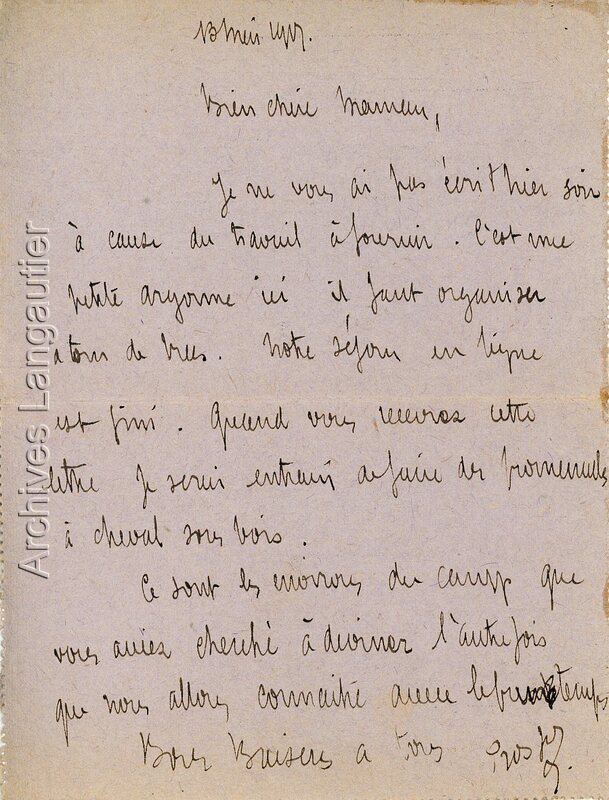 13 Mai 1917.
Bien chère Maman,
Je ne vous ai pas écrit hier soir
à cause du travail à fournir. C'est une
petite argonne ici il faut organiser
à tour de bras. Notre séjour en ligne
est fini. Quand vous recevrez cette
lettre Je serai entrain de faire des promenades
à cheval sous bois.
Ce sont les environs du camp que
vous aviez cherché à deviner l'autre fois
que nous allons connaitre avec le printemps
Bons Baisers a tous
Archives Langautier